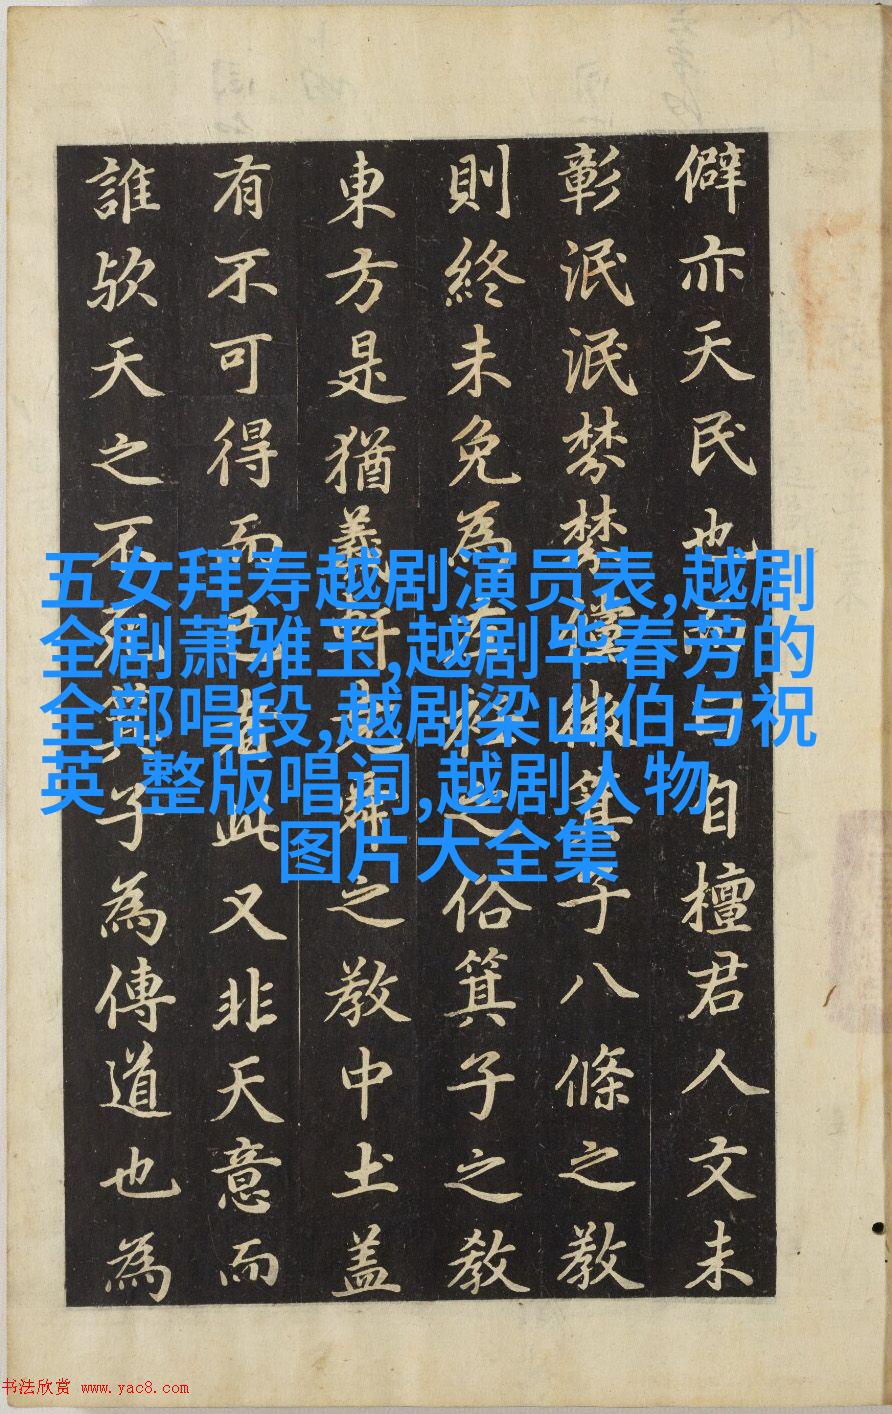 僻亦天民也而自檀君人文未
彰泯泯棼棼儻微箕子八條之教
則終未免為左衽之俗箕子之教
東方是猶羲軒堯舜之教中土盖
有不可得而已者此又非天意而
誰欤天之不死箕子為傳道也為
五女拜寿越剧演员表,越剧
全剧萧雅玉,越剧毕春芳的
全部唱段,越剧梁山伯与祝
英 整版唱词,越剧人物
图片大全集
书法欣赏 www.yac8.com